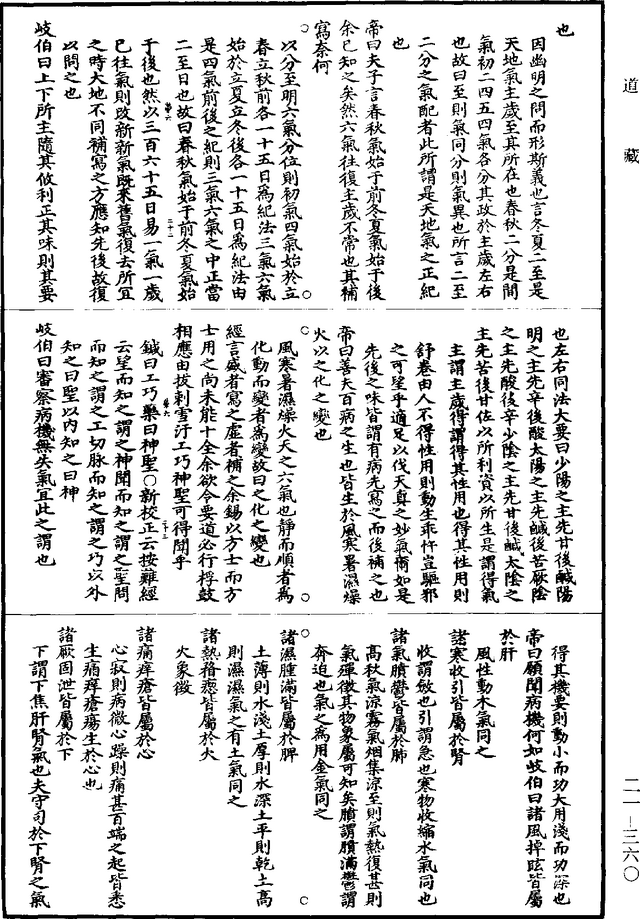 道藏
也
因幽明之問而形斯義也言冬夏二至是
天地氣主歲至其所在也春秋二分是間
氣初二四五四氣各分其政於主歲左右
也故曰至則氣同分則氣異也所言二至
二分之氣配者此所謂是天地氣之正紀
也
帝曰夫子言春秋氣始于前冬夏氣始于後
余已知之矣然六氣往復主歲不常也其補
寫奈何
以分至明六氣分位則初氣四氣始於立
春立秋前各一十五日為紀法三氣六氣
始於立夏立冬後各一十五日為紀法由
是四氣前後之紀則三氣六氣之中正當
二至日也故曰春秋氣始于前冬夏氣始
于後也然以三百六十五日易一氣一歲
已往氣則改新新氣既來舊氣復去所宜
之時大地不同補寫之方應知先後故復
以問之也
岐伯曰上下所主隨其攸利正其味則其要
也左右同法大要曰少陽之主先甘後鹹陽
明之主先辛後酸太陽之主先鹹後苦厥陰
之主先酸後辛少陰之主先甘後鹹太陰之
主先苦後甘佐以所利資以所生是謂得氣
主謂主歲得謂得其性用也得其性用則
舒卷由人不得性用則動生乖忤豈驅邪
之可望乎適足以伐天真之妙氣爾如是
先後之味皆謂有病先寫之而後補之也
帝曰善夫百病之生也皆生於風寒暑濕燥
火以之化之變也
風寒暑濕燥火天之六氣也靜而順者為
化動而變者為變故曰之化之變也
經言盛者寫之虛者補之余錫以方士而方
士用之尚未能十全余欲令要道必行桴鼓
相應由拔刺雪汙工巧神聖可得聞乎
鍼曰工巧藥曰神聖○新校正云按難經
云望而知之謂之神聞而知之謂之聖問
而知之謂之工切脉而知之謂之巧以外
知之曰聖以內知之曰神
岐伯曰審察病機無失氣宜此之謂也
得其機要則動小而功大用淺而功深也
帝曰願聞病機何如岐伯曰諸風掉眩皆屬
於肝
風性動木氣同之
諸寒收引皆屬於腎
收謂斂也引謂急也寒物收縮水氣同也
諸氣膹鬱皆屬於肺
高秋氣涼霧氣烟集涼至則氣熱復甚則
氣殫徵其物象屬可知矣膹謂膹滿鬱謂
奔迫也氣之為用金氣同之
諸濕腫滿皆屬於脾
土薄則水淺土厚則水深土平則乾土高
則濕濕氣之有土氣同之
諸熱瞀瘛皆屬於火
火象徵
諸痛痒瘡皆屬於心
心寂則病微心躁則痛甚百端之起皆悉
生痛痒瘡瘍生於心也
諸厥固泄皆屬於下
下謂下焦肝腎氣也夫守司於下腎之氣
二一–三六〇